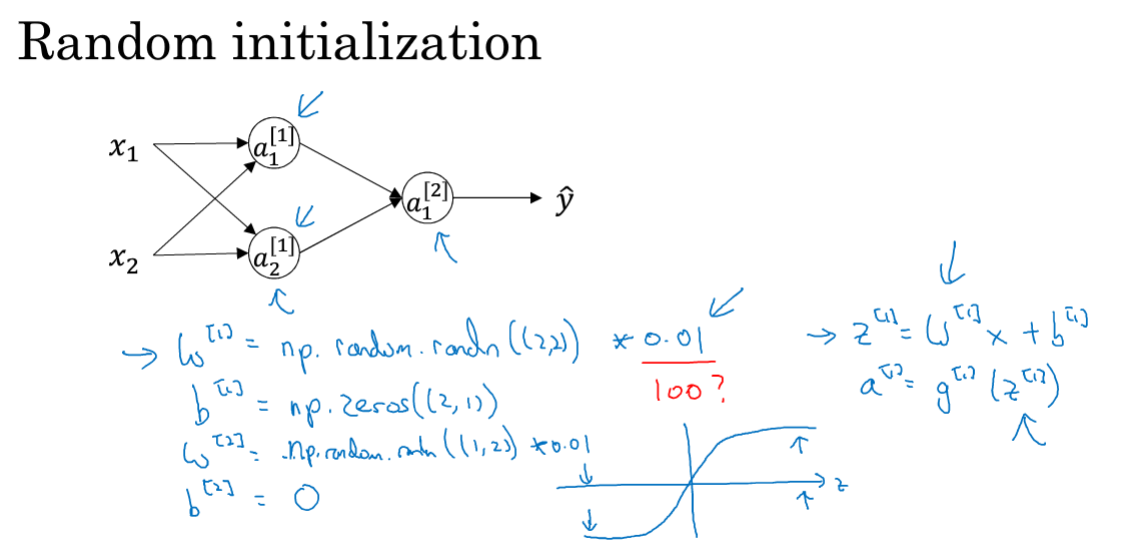 Random initialization
x₁
a₁^[1]
a₁^[2]
ŷ
x₂
a₂^[1]
→ W^[1] = np.random.randn((2,2)) * 0.01
100?
b^[1] = np.zeros((2,1))
W^[2] = np.random.randn((1,2)) * 0.01
b^[2] = 0
→ z^[1] = W^[1] x + b^[1]
a^[1] = g^[1](z^[1])
z